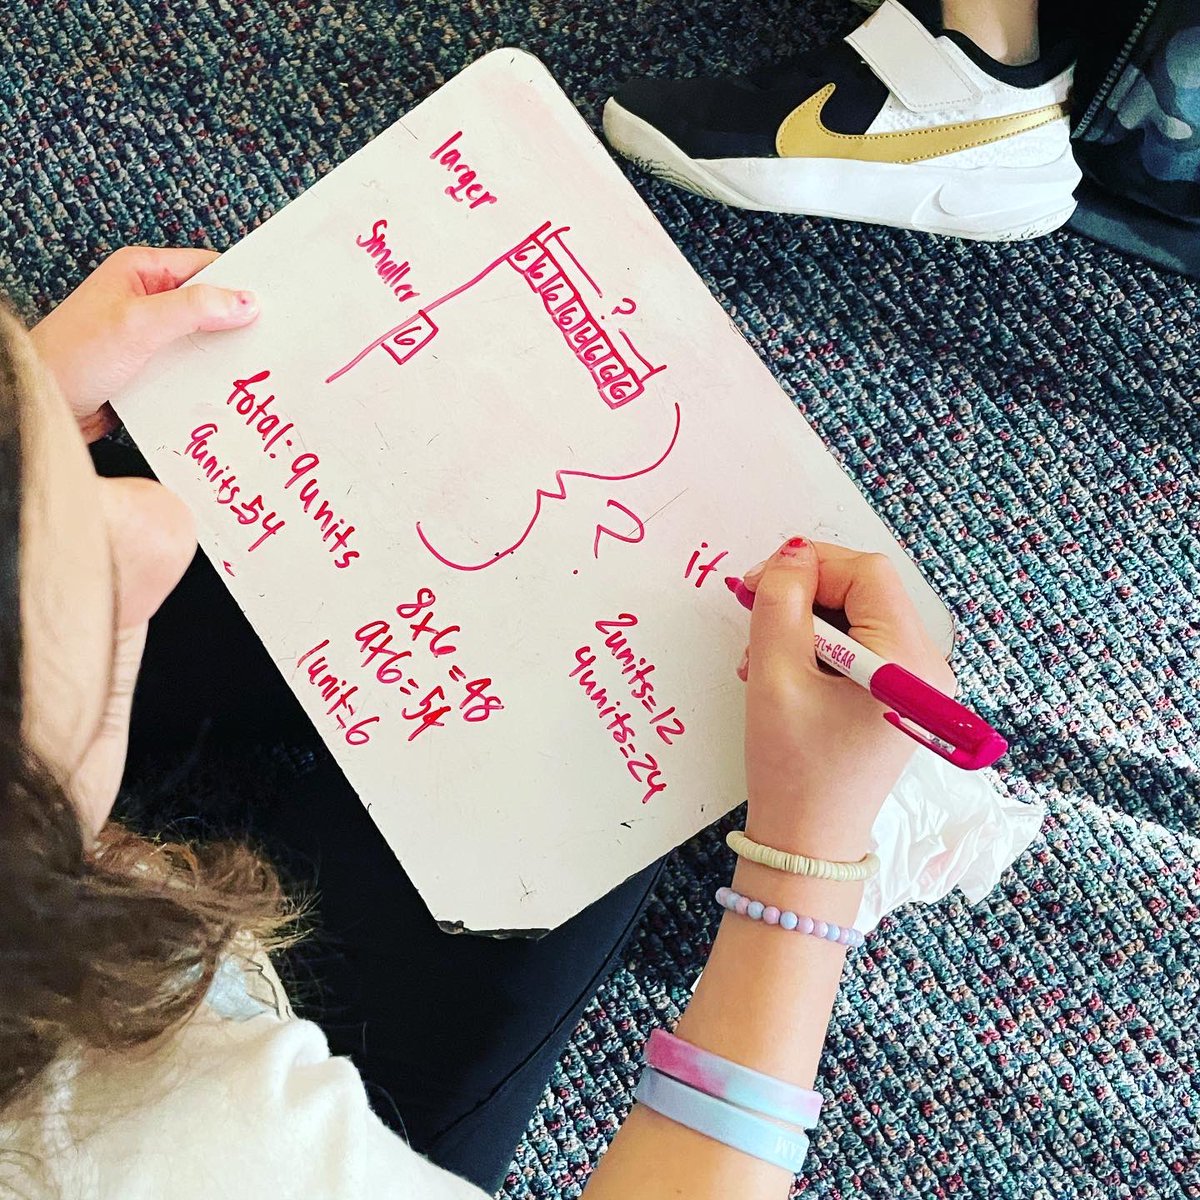 larger
6 6 6 6 6 6 6 6
?
smaller
6
total: 9units
9units=54
=
?
8x6=48
9x6=54
1unit=6
2units=12
4units=24
it
+GEAR